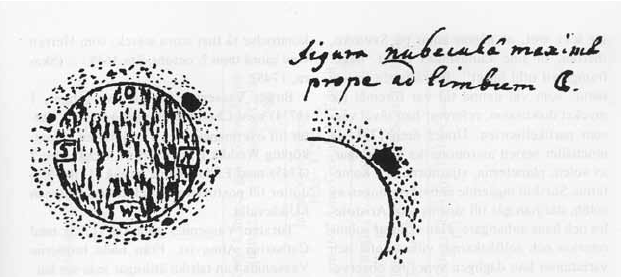 figura nubeculâ maximâ
prope ad limbum ☾.
O
S N
W